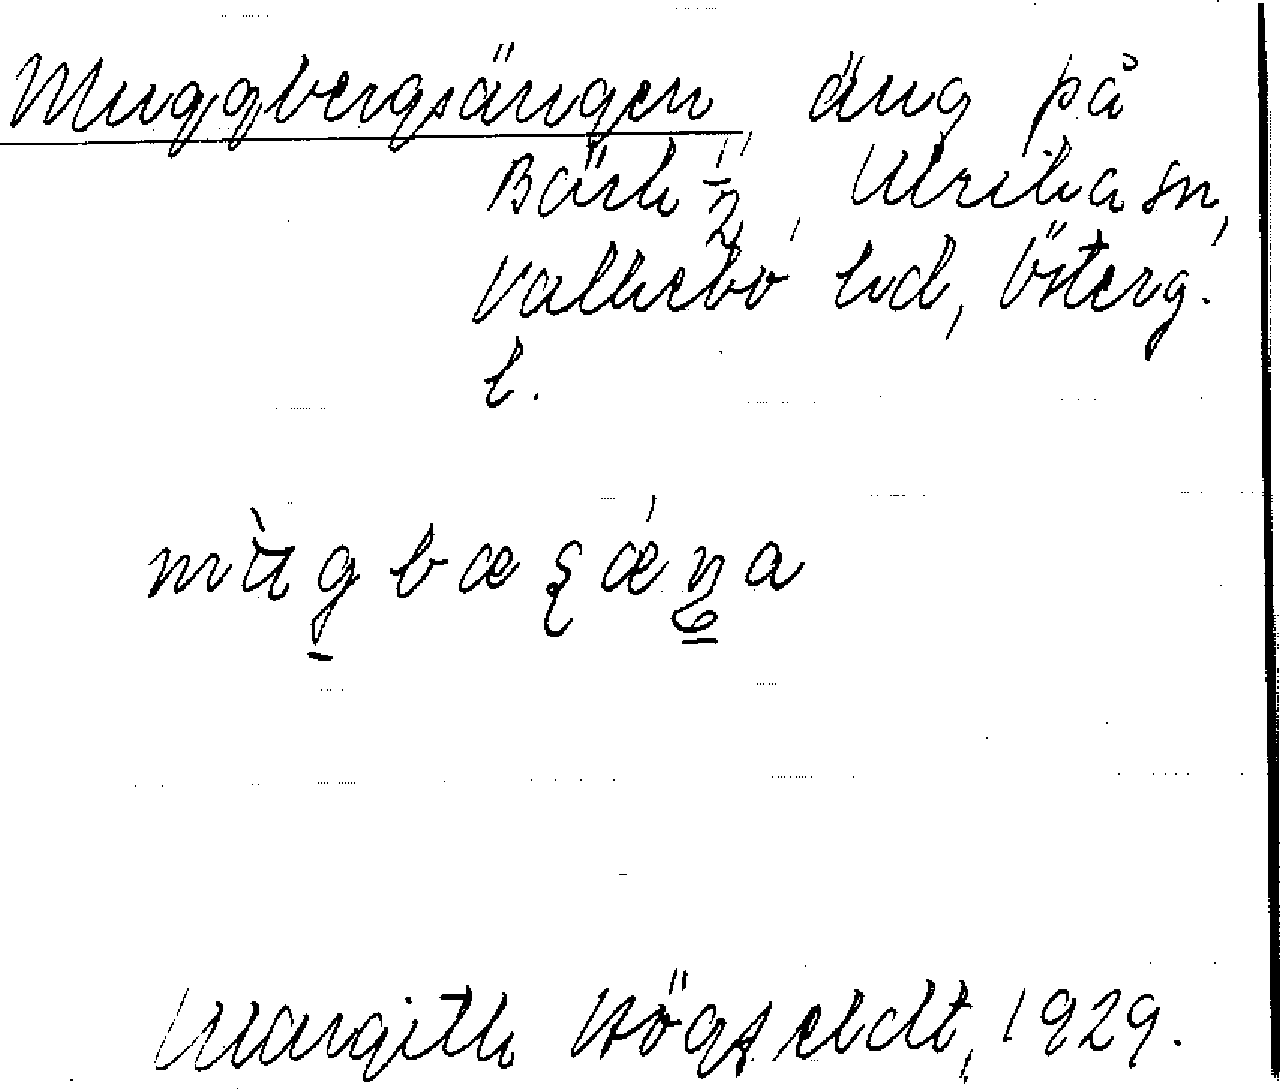 Muggbergsängen, äng på
Bärk ½, Ulrika sn,
Valkebo hd, Österg.
l.
mùgbæʂǽŋa
Margith Högfeldt, 1929.